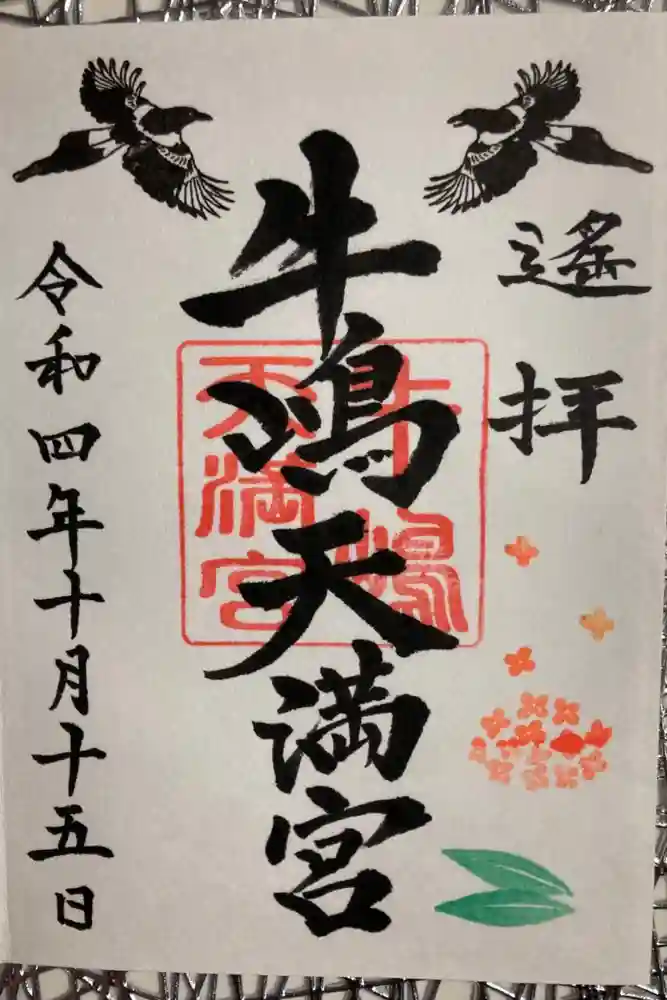 遙拝
牛嶋天満宮
令和四年十月十五日
牛嶋
天満宮